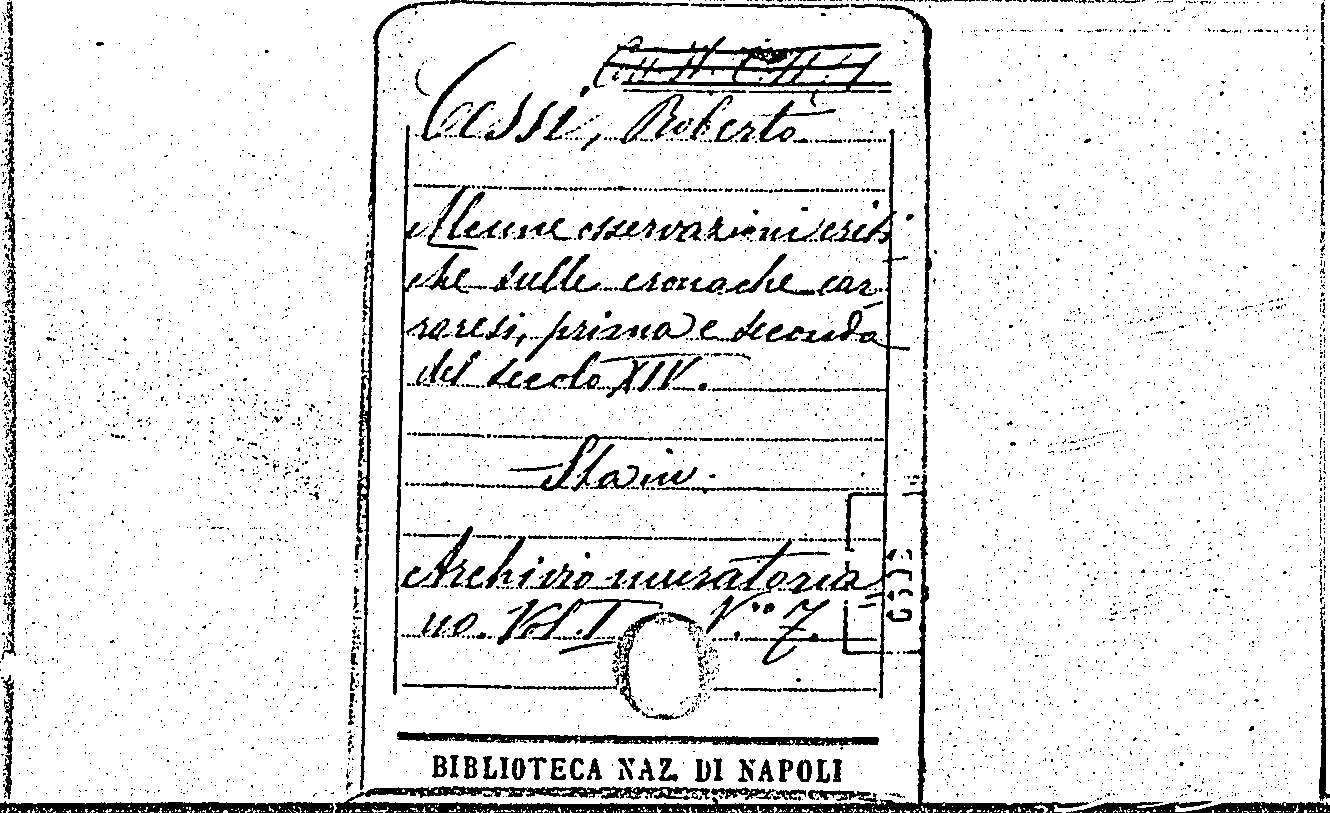 Cessi, Roberto.
Alcune osservazioni criti-
che sulle cronache car-
raresi, prima e seconda
del secolo XIV.
Archivio muratoria
no. Vol. I N.º 7.
BIBLIOTECA NAZ. DI NAPOLI